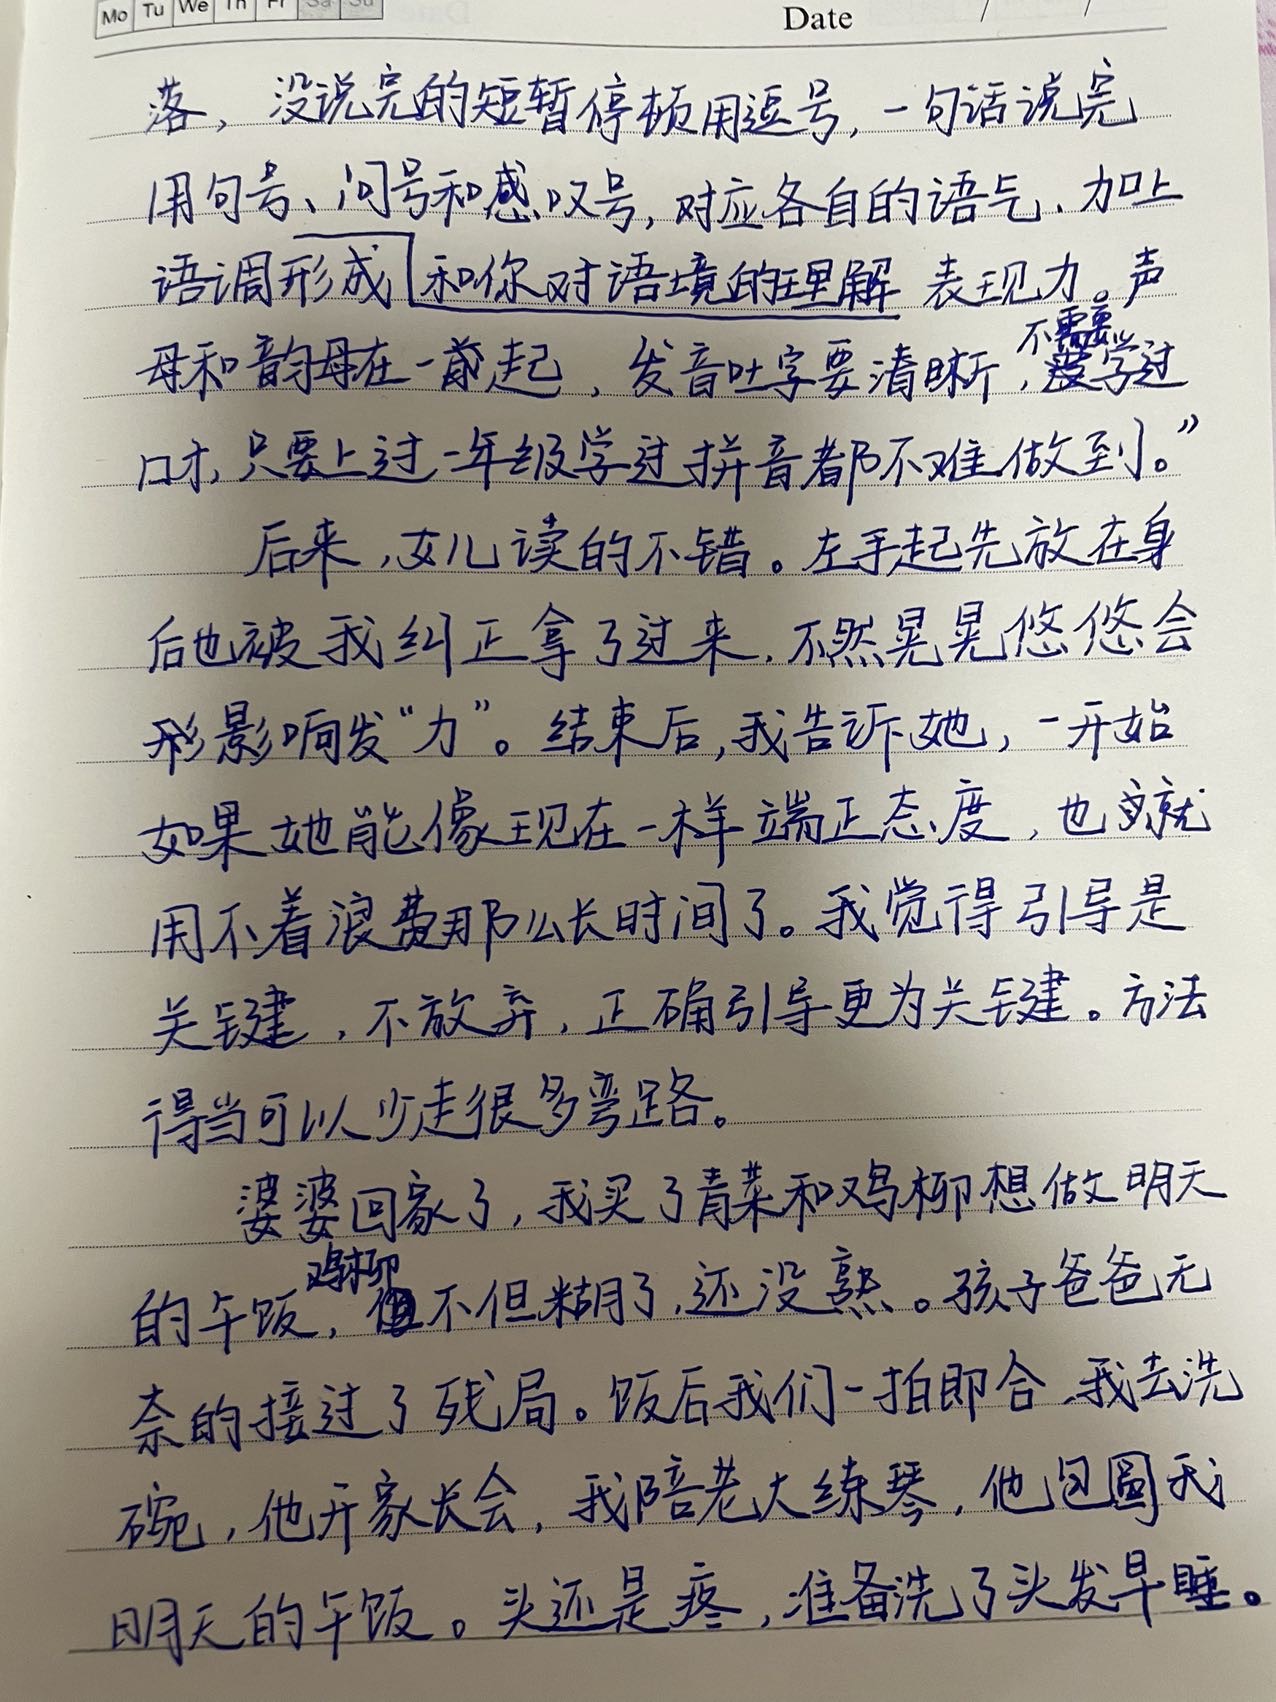 Mo Tu We Th Fr Sa Su
Date / /
落，没说完的短暂停顿用逗号，一句话说完
用句号、问号和感叹号，对应各自的语气、加上
语调形成和你对语境的理解表现力。声
母和韵母在一起，发音吐字要清晰，不需要学过
口才，只要上过一年级学过拼音都不难做到。”
后来，女儿读的不错。左手起先放在身
后也被我纠正拿了过来，不然晃晃悠悠会
影响发“力”。结束后，我告诉她，一开始
如果她能像现在一样端正态度，也就
用不着浪费那么长时间了。我觉得引导是
关键，不放弃，正确引导更为关键。方法
得当可以少走很多弯路。
婆婆回家了，我买了青菜和鸡柳想做明天
的午饭，鸡柳不但糊了，还没熟。孩子爸爸无
奈的接过了残局。饭后我们一拍即合，我去洗
碗，他开家长会，我陪老大练琴，他包圆我
明天的午饭。头还是疼，准备洗了头发早睡。